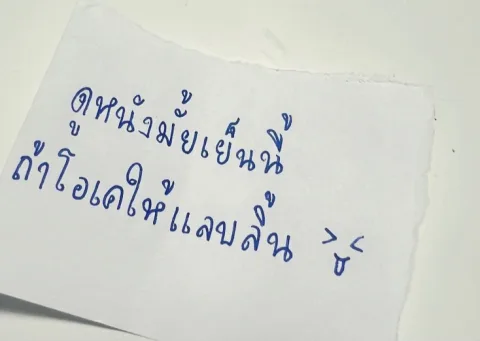 ดูหนังมั้ยเย็นนี้
ถ้าโอเคให้แลบลิ้น